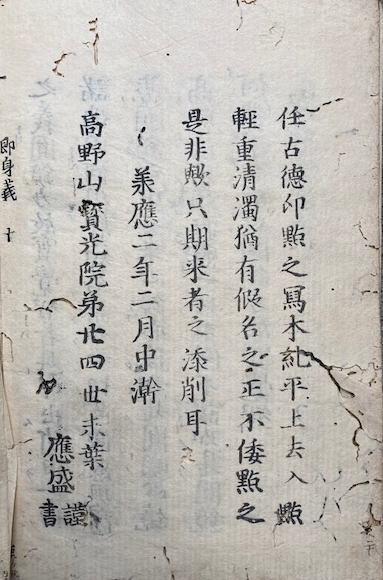 任古德印點之寫本糺平上去入點
輕重清濁猶有假名之正不倭點之
是非歟只期来者之添削耳
承應二年二月中澣
高野山寳光院第廿四世末葉
應盛謹書
即身義 十